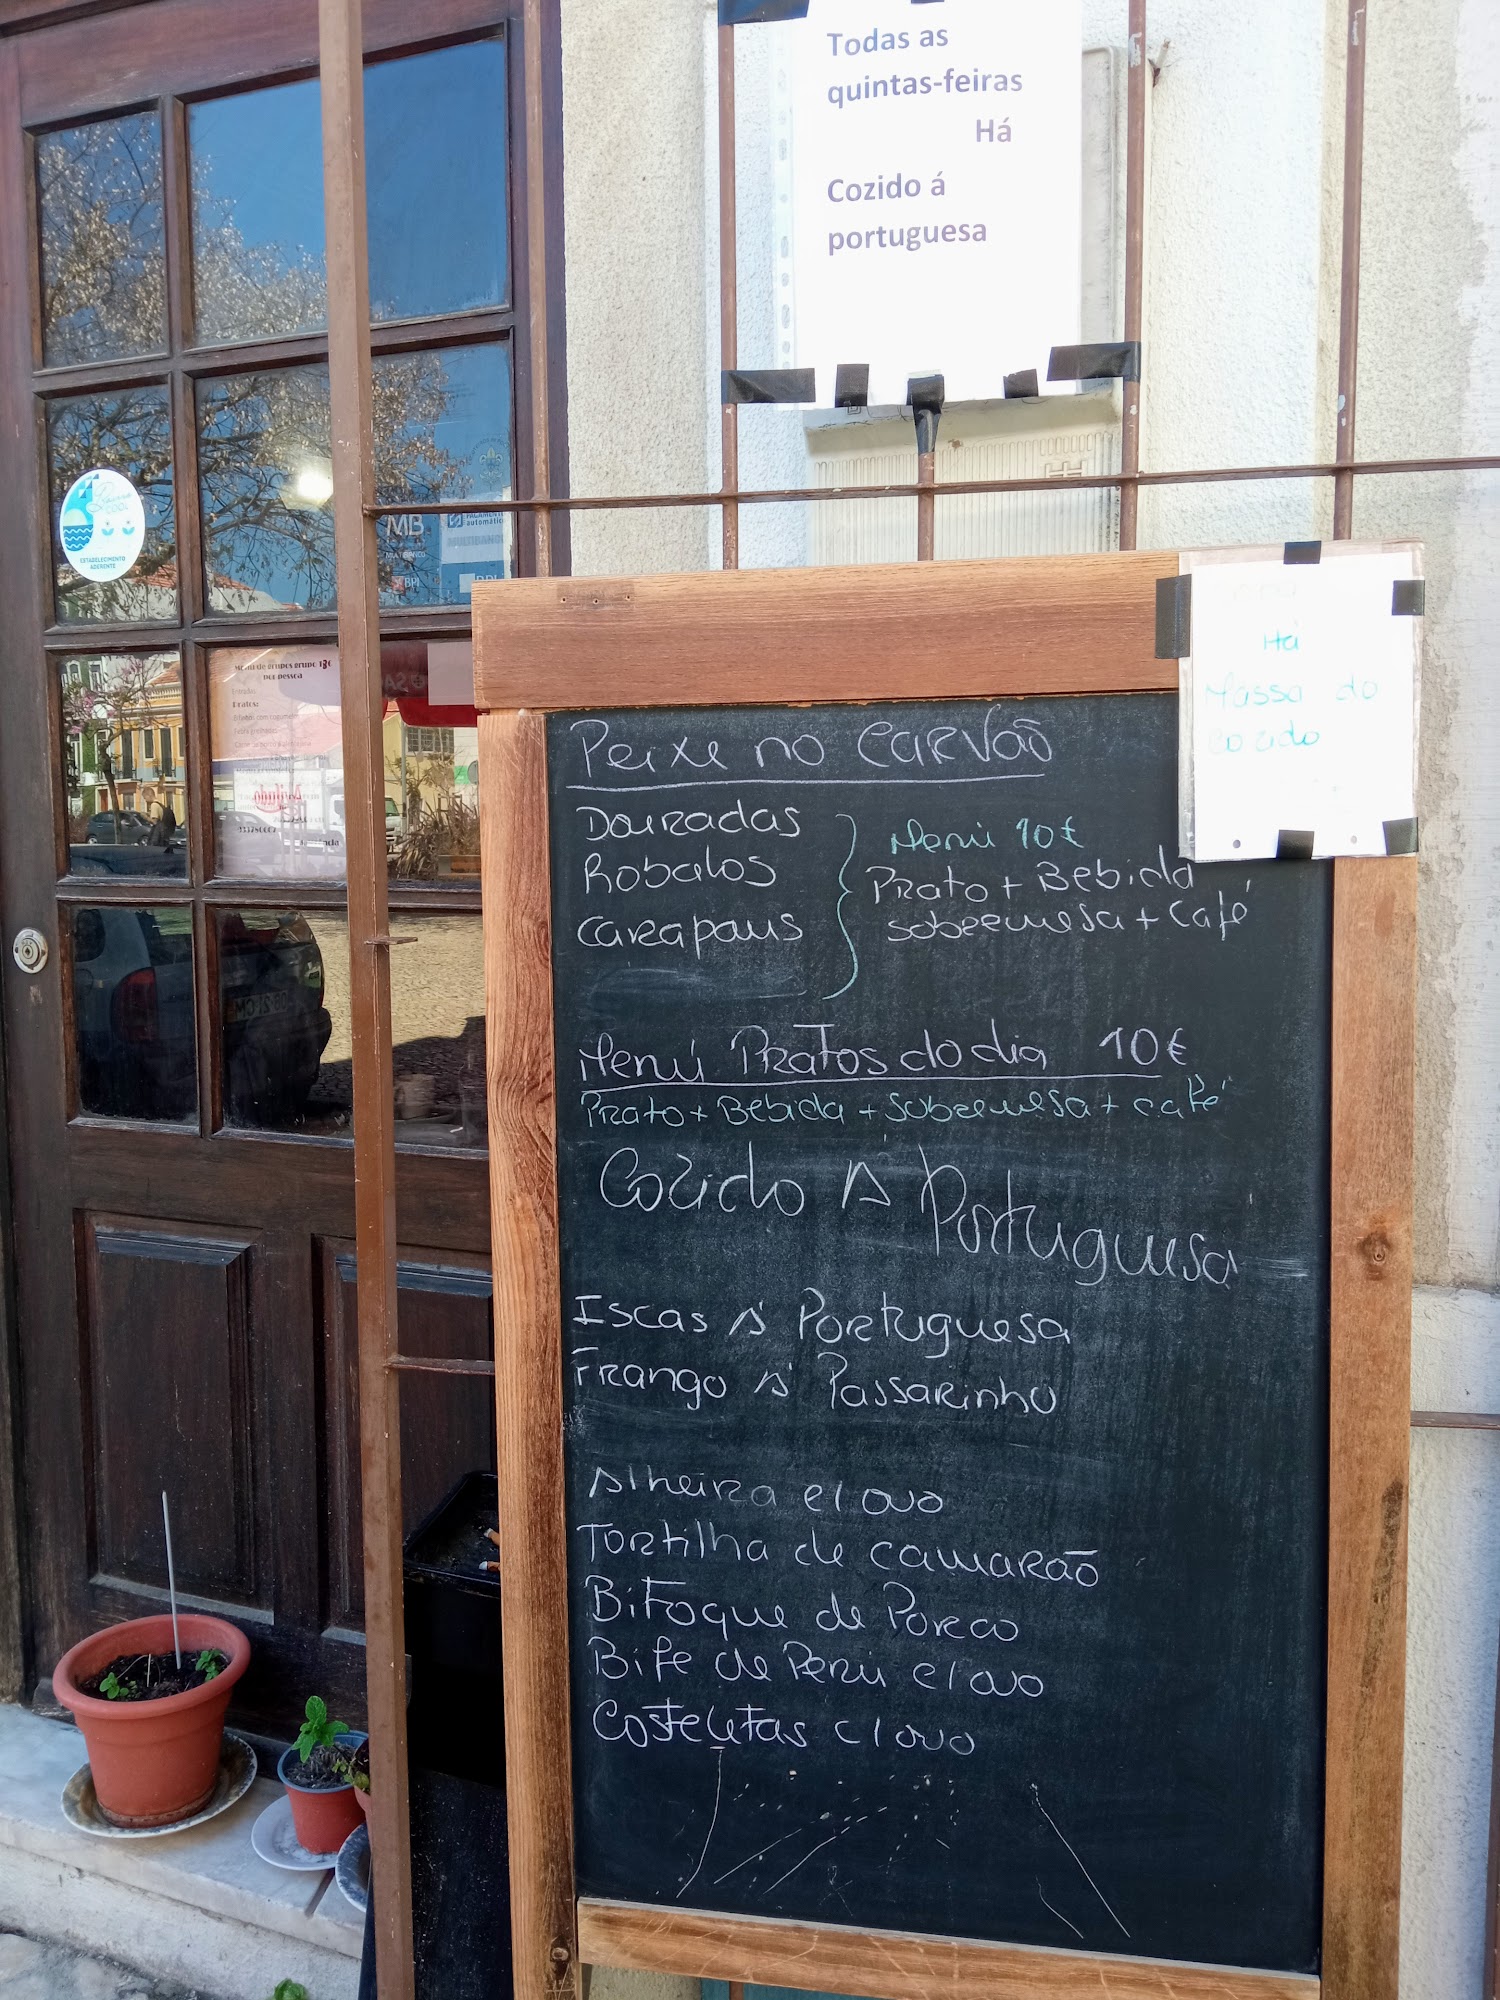 Todas as
quintas-feiras
Há
Cozido á
portuguesa
Há
Massa do
Cozido
MB
MULTIBANCO
PAGAMENTO
automático
MULTIBANCO
BPI
COOL
ESTABELECIMENTO
ADERENTE
Menu de grupos grupo 13€
por pessoa
Pratos:
Peixe no CARVão
Douradas
Robalos
Carapaus
Menú 10€
Prato + Bebida
sobremesa + Café
Menú Pratos do dia 10€
Prato + Bebida + sobremesa + café
Cozido À Portuguesa
Iscas À Portuguesa
Frango À Passarinho
Alheira c/ ovo
Tortilha de camarão
Bitoque de Porco
Bife de Perú c/ ovo
Costeletas c/ ovo